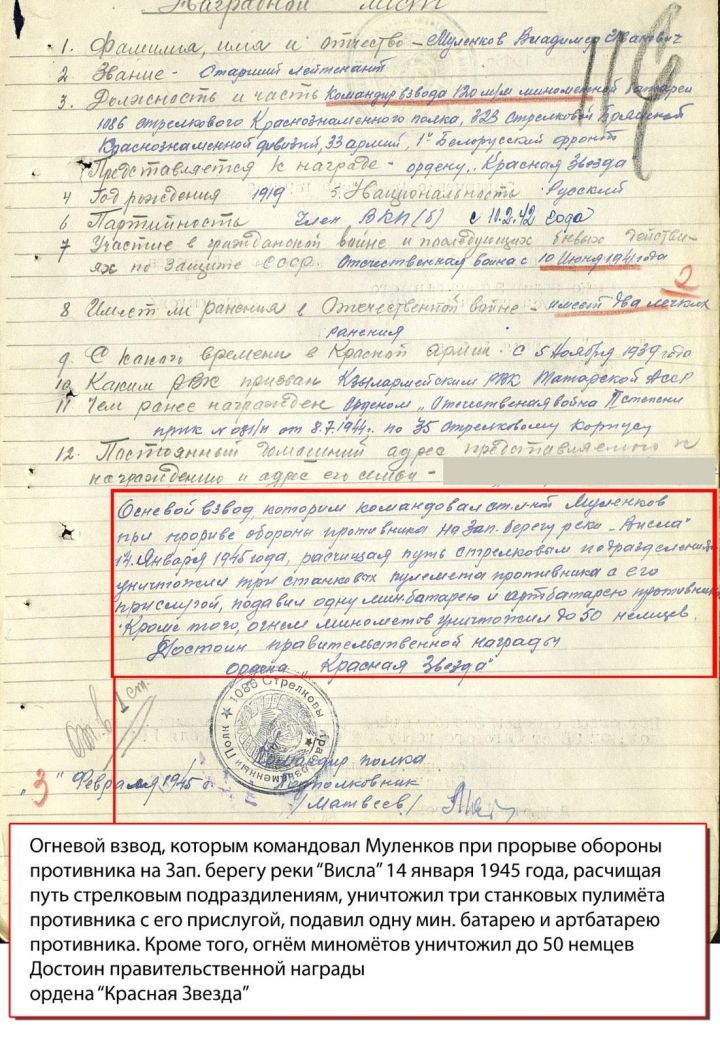 Наградной лист
1. Фамилия, имя и отчество – Муленков Владимир Иванович
2 Звание - Старший лейтенант
3. Должность и часть Командир взвода 120 м/м минометной батареи
1086 стрелкового Краснознаменного полка, 323 стрелковой Брянской
Краснознаменной дивизии, 33 армии, 1го Белорусский фронт
Представляется к награде - ордену „Красная Звезда
4 Год рождения 1919 5. Национальность Русский
6 Партийность Член ВКП(б) с 10.2.42 года
7 Участие в гражданской войне и последующих боевых действи-
ях по защите СССР. Отечественная война с 10 Июня 1941 года
2
8 Имеет ли ранения в Отечественной войне - имеет два легких
ранения
9. С какого времени в Красной армии - с 5 Ноября 1939 года
10 Каким РВК призван Кзылармейским РВК Татарской АССР
11 Чем ранее награжден Орденом „Отечественая война II степени
прик N 031/н от 8.7.1944г. по 35 стрелковому корпусу
12. Постоянный домашний адрес представляемого к
награждению и адрес его семьи -
Огневой взвод которим командовал ст.л-нт Муленков
при прориве обороны противника на Зап. берегу реки „Висла"
14. Января 1945 года, расчищая путь стрелковым подразделения
уничтожели три станковых пулемета противника с его
прислугой, подавил одну мин.батарею и артбатарею противник
Кроме того, огнем минометов уничтожил до 50 немцев.
Достоин правительственной награды
ордена „Красная Звезда"
1086 Стрелковый Краснознаменный Полк
Командир полка
"3" Февраля 1945 г. Подполковник
/Матвеев/
Огневой взвод, которым командовал Муленков при прорыве обороны
противника на Зап. берегу реки “Висла” 14 января 1945 года, расчищая
путь стрелковым подраздилениям, уничтожил три станковых пулимёта
противника с его прислугой, подавил одну мин. батарею и артбатарею
противника. Кроме того, огнём миномётов уничтожил до 50 немцев
Достоин правительственной награды
ордена “Красная Звезда”